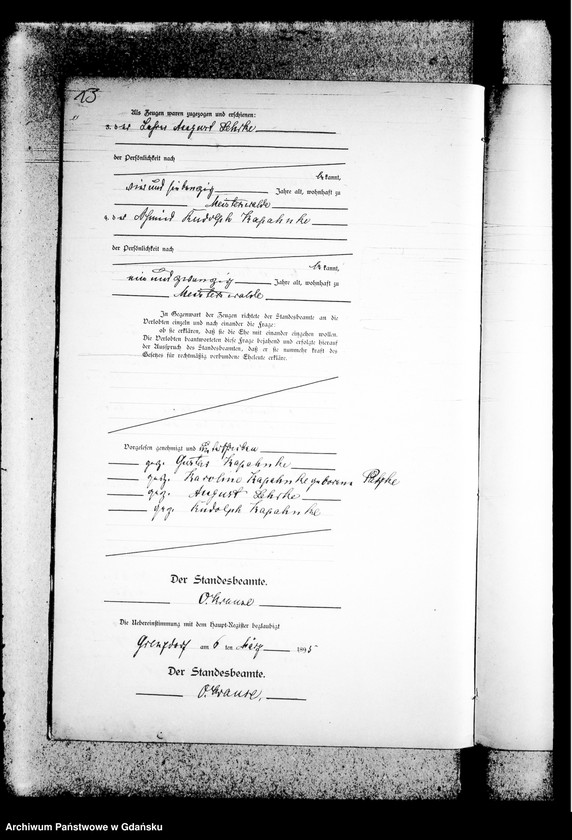 13
Als Zeugen waren zugezogen und erschienen:
3. der August Lehrke
der Persönlichkeit nach
be kannt,
vier und siebenzig Jahre alt, wohnhaft zu
Meisterswalde
4. der Schmied Rudolph Kapahnke
der Persönlichkeit nach
be kannt,
ein und zwanzig Jahre alt, wohnhaft zu
Meisterswalde
In Gegenwart der Zeugen richtete der Standesbeamte an die
Verlobten einzeln und nach einander die Frage:
ob sie erklären, daß sie die Ehe mit einander eingehen wollen.
Die Verlobten beantworteten diese Frage bejahend und erfolgte hierauf
der Ausspruch des Standesbeamten, daß er sie nunmehr kraft des
Gesetzes für rechtmäßig verbundene Eheleute erkläre.
Vorgelesen genehmigt und unterschrieben
gez. Gustav Kapahnke
gez. Karoline Kapahnke geborene
gez. August Lehrke
gez. Rudolph Kapahnke
Der Standesbeamte.
O. Krause
Die Uebereinstimmung mit dem Haupt-Register beglaubigt
am 6 ten März 1895
Der Standesbeamte.
O. Krause.
Archiwum Państwowe w Gdańsku